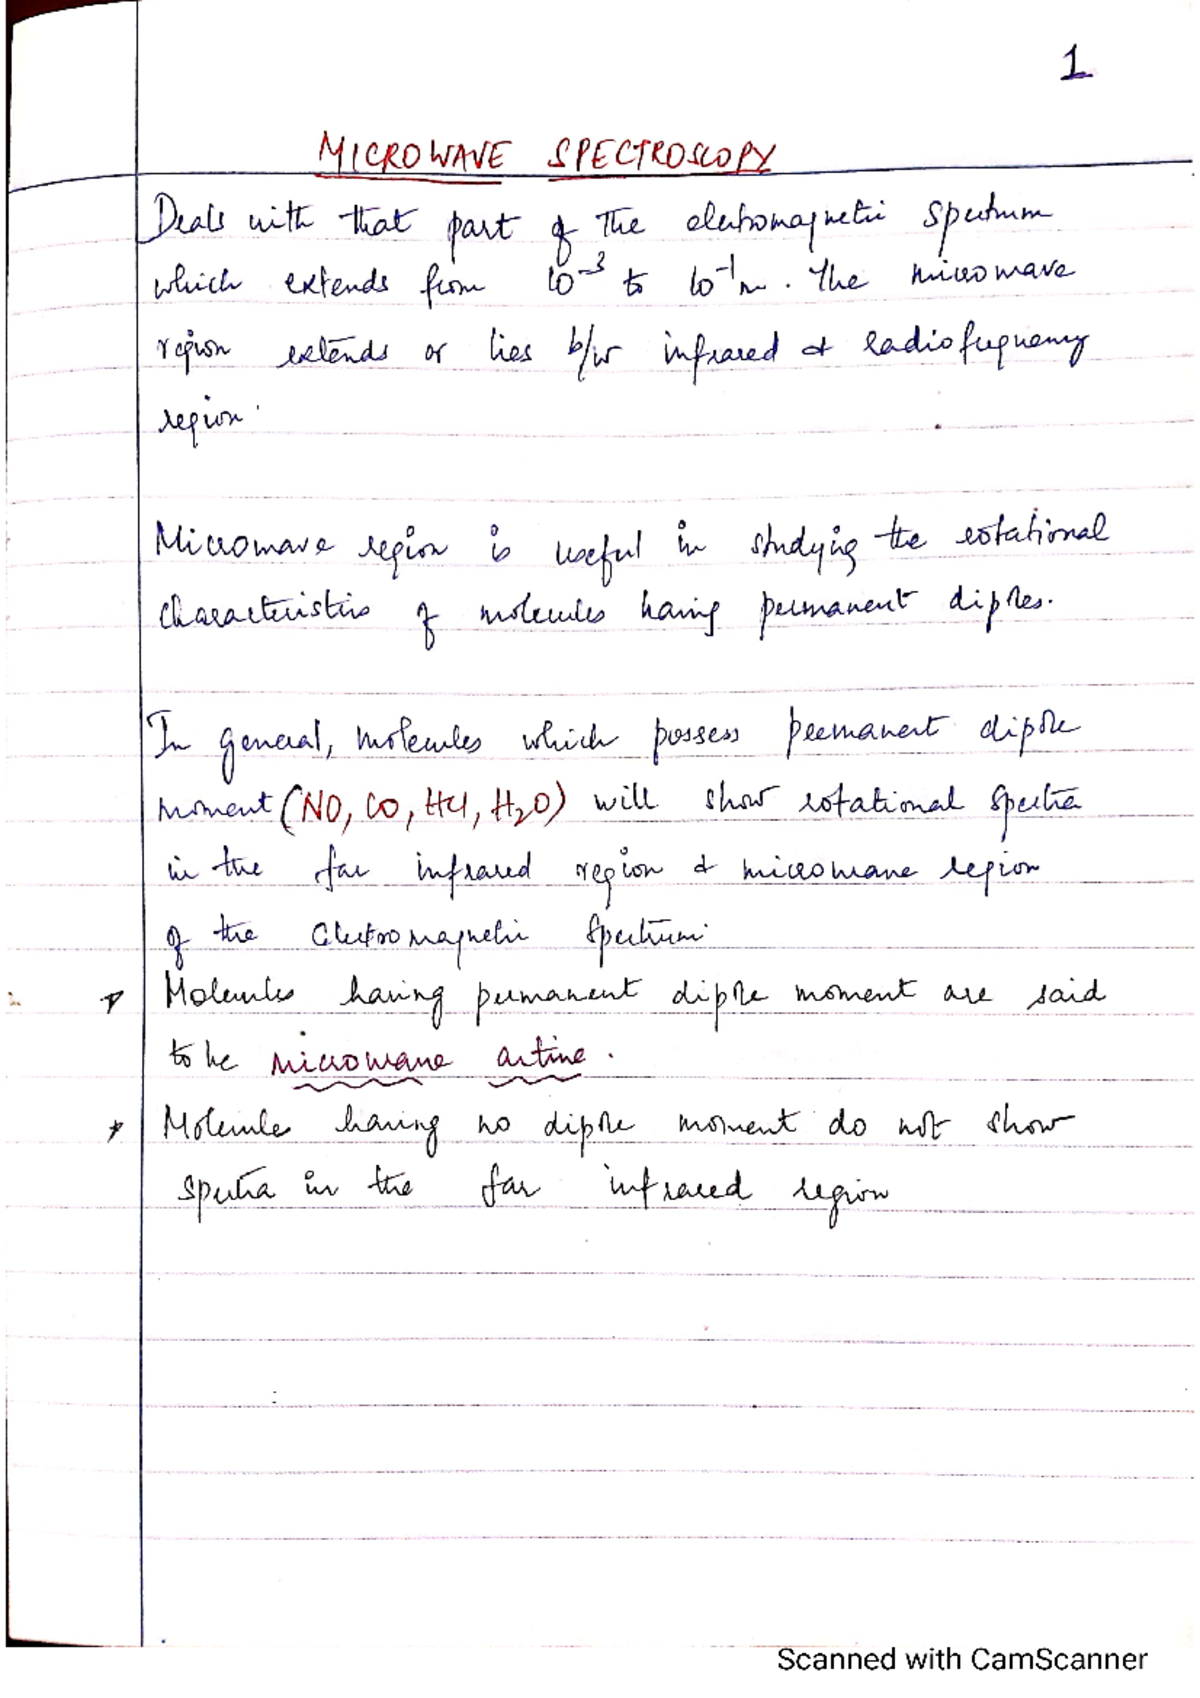 1
MICROWAVE SPECTROSCOPY
Deals with that part of the electromagnetic spectrum
which extends from 10⁻³ to 10⁻¹m. The microwave
region extends or lies b/w infrared & radiofrequency
region.
Microwave region is useful in studying the rotational
characteristics of molecules having permanent dipoles.
In general, molecules which possess permanent dipole
moment (NO, CO, HCl, H₂O) will show rotational spectra
in the far infrared region & microwave region
of the electromagnetic spectrum.
* Molecules having permanent dipole moment are said
to be microwave active.
* Molecules having no dipole moment do not show
spectra in the far infrared region
Scanned with CamScanner